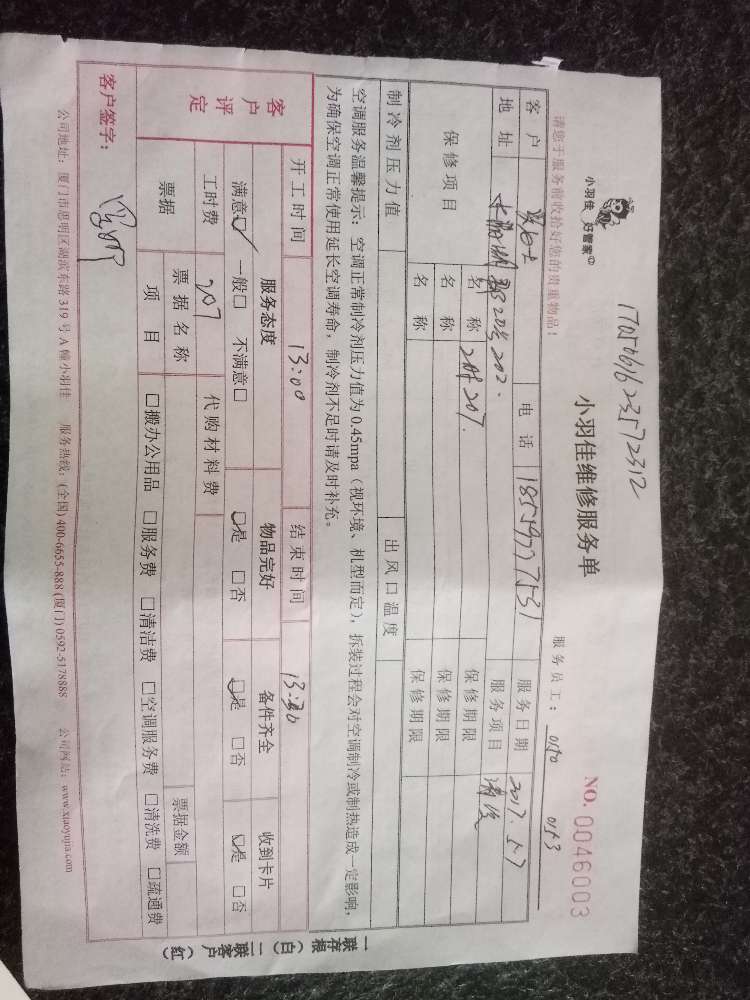 17050616235172312
小羽佳 好管家
小羽佳维修服务单
NO. 0046003
请您于服务前收拾好您的贵重物品！
服务员工： 0150 0153
客户 电话 18559777531 服务日期 2017.5.7
地址 20号202. 服务项目 清洗
保修项目 名称 207. 保修期限
名称 保修期限
名称 保修期限
制冷剂压力值 出风口温度
空调服务温馨提示：空调正常制冷剂压力值为0.45mpa（视环境、机型而定），拆装过程会对空调制冷或制热造成一定影响，
为确保空调正常使用延长空调寿命，制冷剂不足时请及时补充。
开工时间 13:00 结束时间 13:30
客户评定
服务态度 物品完好 备件齐全 收到卡片
满意☑ 一般□ 不满意□ ☑是 □否 ☑是 □否 ☑是 □否
工时费 207 代购材料费
票据 票据名称 票据金额
项目 □搬办公用品 □服务费 □清洁费 □空调服务费 □清洗费 □疏通费
客户签字：
公司地址：厦门市思明区湖滨东路319号A幢小羽佳 服务热线：(全国) 400-6655-888 (厦门) 0592-5178888 公司网站：www.xiaoyujia.com
一联存根（白）二联客户（红）